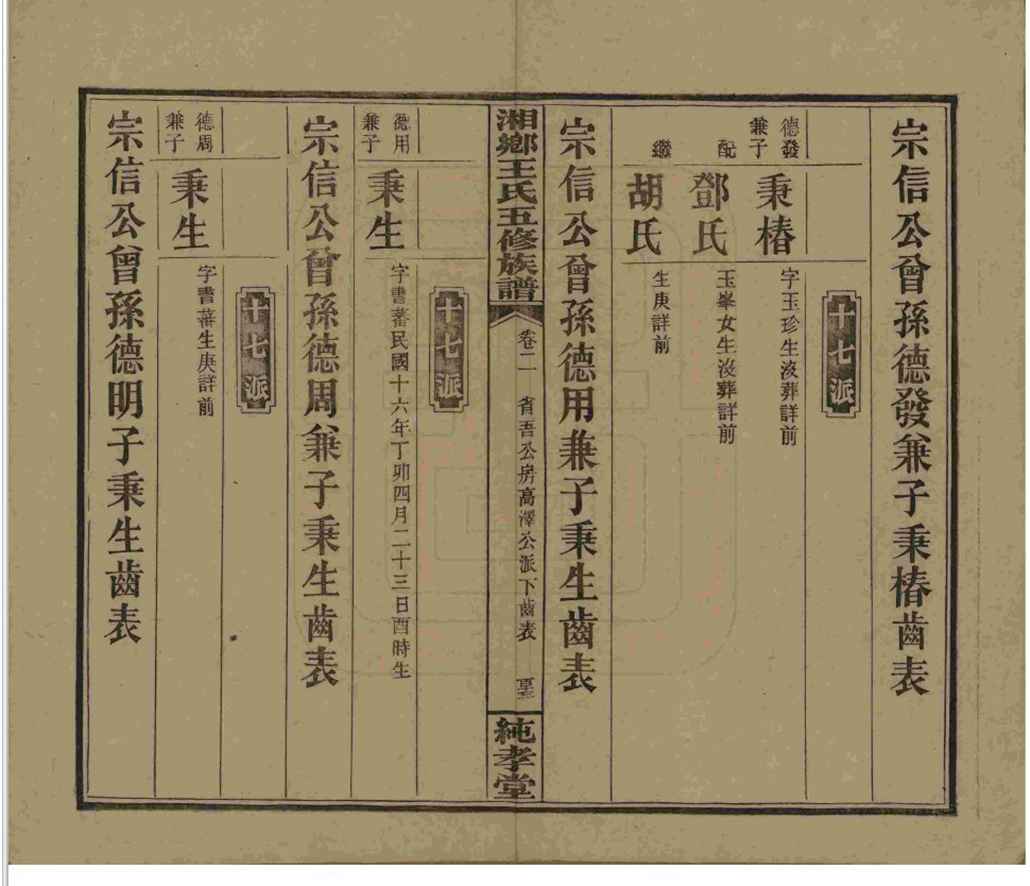 宗信公曾孫德發兼子秉椿齒表
十七派
德發兼子
秉椿
字玉珍生歿葬詳前
配
鄧氏
玉峯女生歿葬詳前
繼
胡氏
生庚詳前
宗信公曾孫德用兼子秉生齒表
湘鄉王氏五修族譜
卷二
省吾公房高澤公派下齒表
純孝堂
十七派
德用兼子
秉生
字書蕃民國十六年丁卯四月二十三日酉時生
宗信公曾孫德周兼子秉生齒表
十七派
德周兼子
秉生
字書蕃生庚詳前
宗信公曾孫德明子秉生齒表